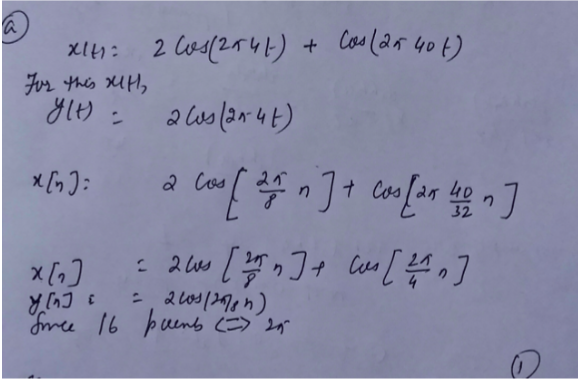 a
x(t) = 2 Cos(2π4t) + Cos(2π 40t)
For this x(t),
y(t) = 2 Cos(2π4t)
x[n] : 2 Cos[2π/8 n] + Cos[2π 40/32 n]
x[n] = 2 Cos[2π/8 n] + Cos[2π/4 n]
y[n] : = 2 Cos(2π/8 n)
Since 16 points <=> 2π
1